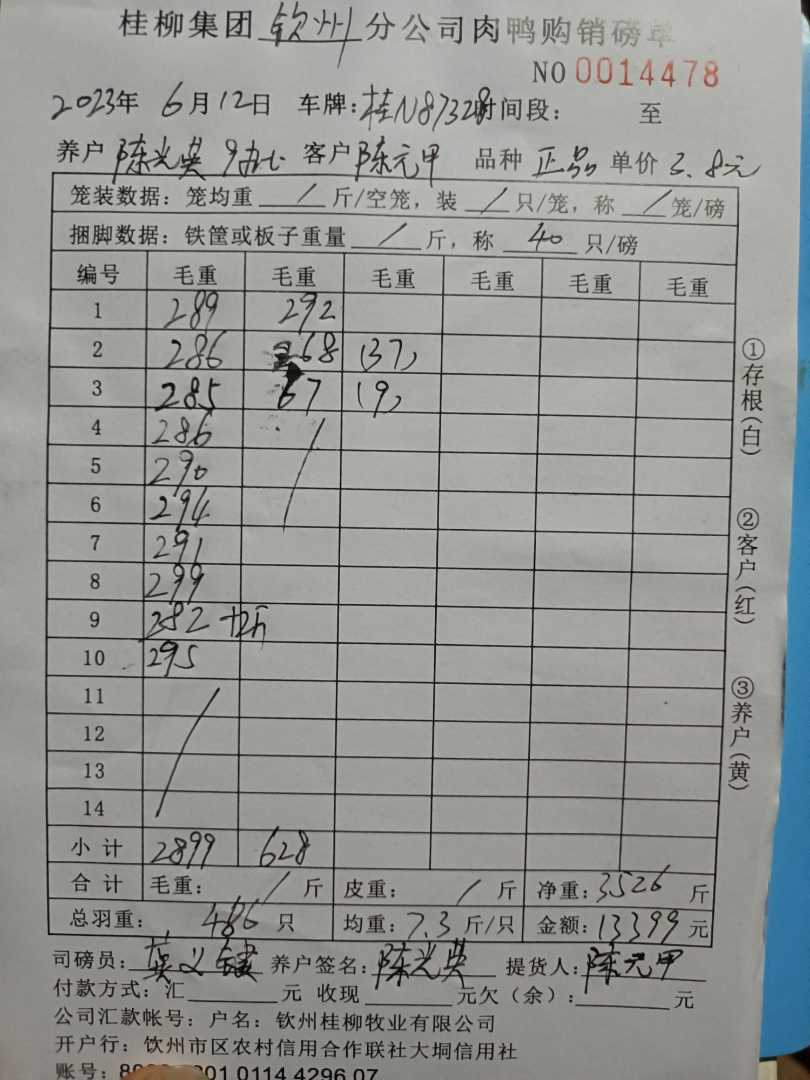 桂柳集团 钦州 分公司肉鸭购销磅单
NO 0014478
2023年 6月12日 车牌:桂N87328时间段: 至
养户 陈光英 客户 陈元甲 品种 正品 单价 3.8元
笼装数据:笼均重 / 斤/空笼,装 / 只/笼,称 / 笼/磅
捆脚数据:铁筐或板子重量 / 斤,称 40 只/磅
编号 毛重 毛重 毛重 毛重 毛重 毛重
1 289 292
2 286 268 (37)
3 285 67 (9)
4 286 /
5 290
6 294
7 291
8 299
9 282
10 295
11 /
12
13
14
小计 2899 628
合计 毛重: / 斤 皮重: / 斤 净重:3526 斤
总羽重: 486 只 均重:7.3 斤/只 金额:13399 元
司磅员: 养户签名:陈光英 提货人:陈元甲
付款方式:汇 元 收现 元欠(余): 元
公司汇款帐号:户名:钦州桂柳牧业有限公司
开户行:钦州市区农村信用合作联社大垌信用社
账号: 01 0114 4296 07
①存根(白)
②客户(红)
③养户(黄)